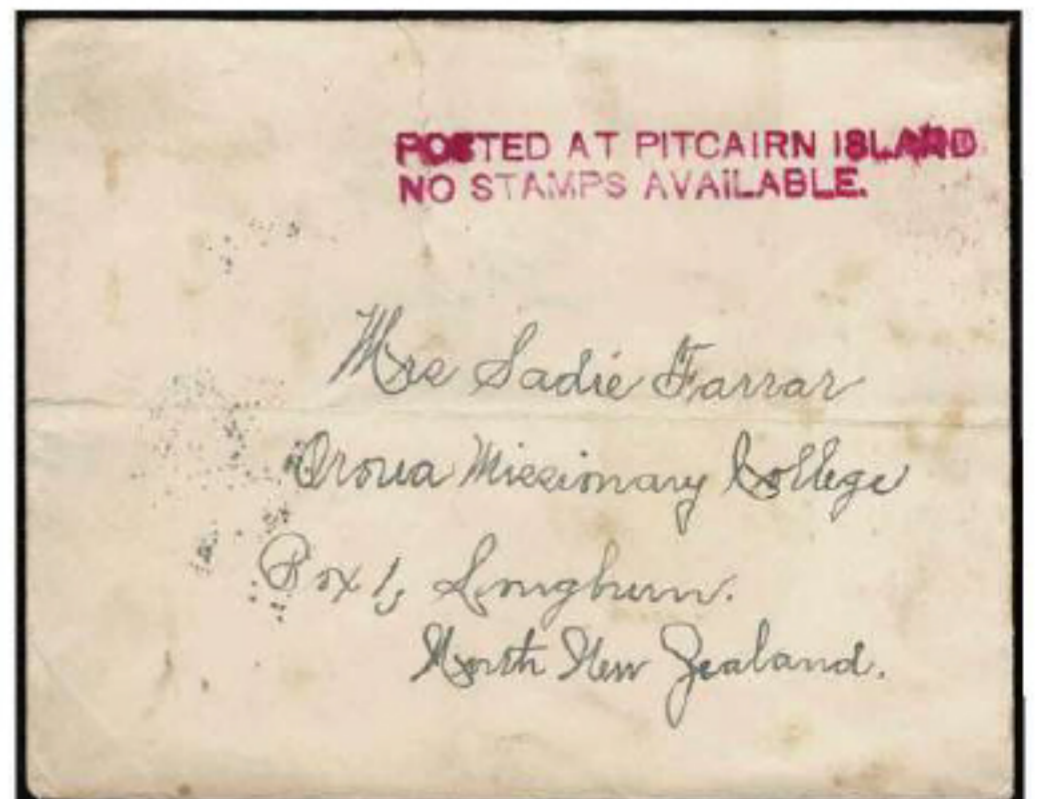 POSTED AT PITCAIRN ISLAND
NO STAMPS AVAILABLE.
Mrs Sadie Farrar
Oroua Missionary College
Box 1, Longburn.
North New Zealand.